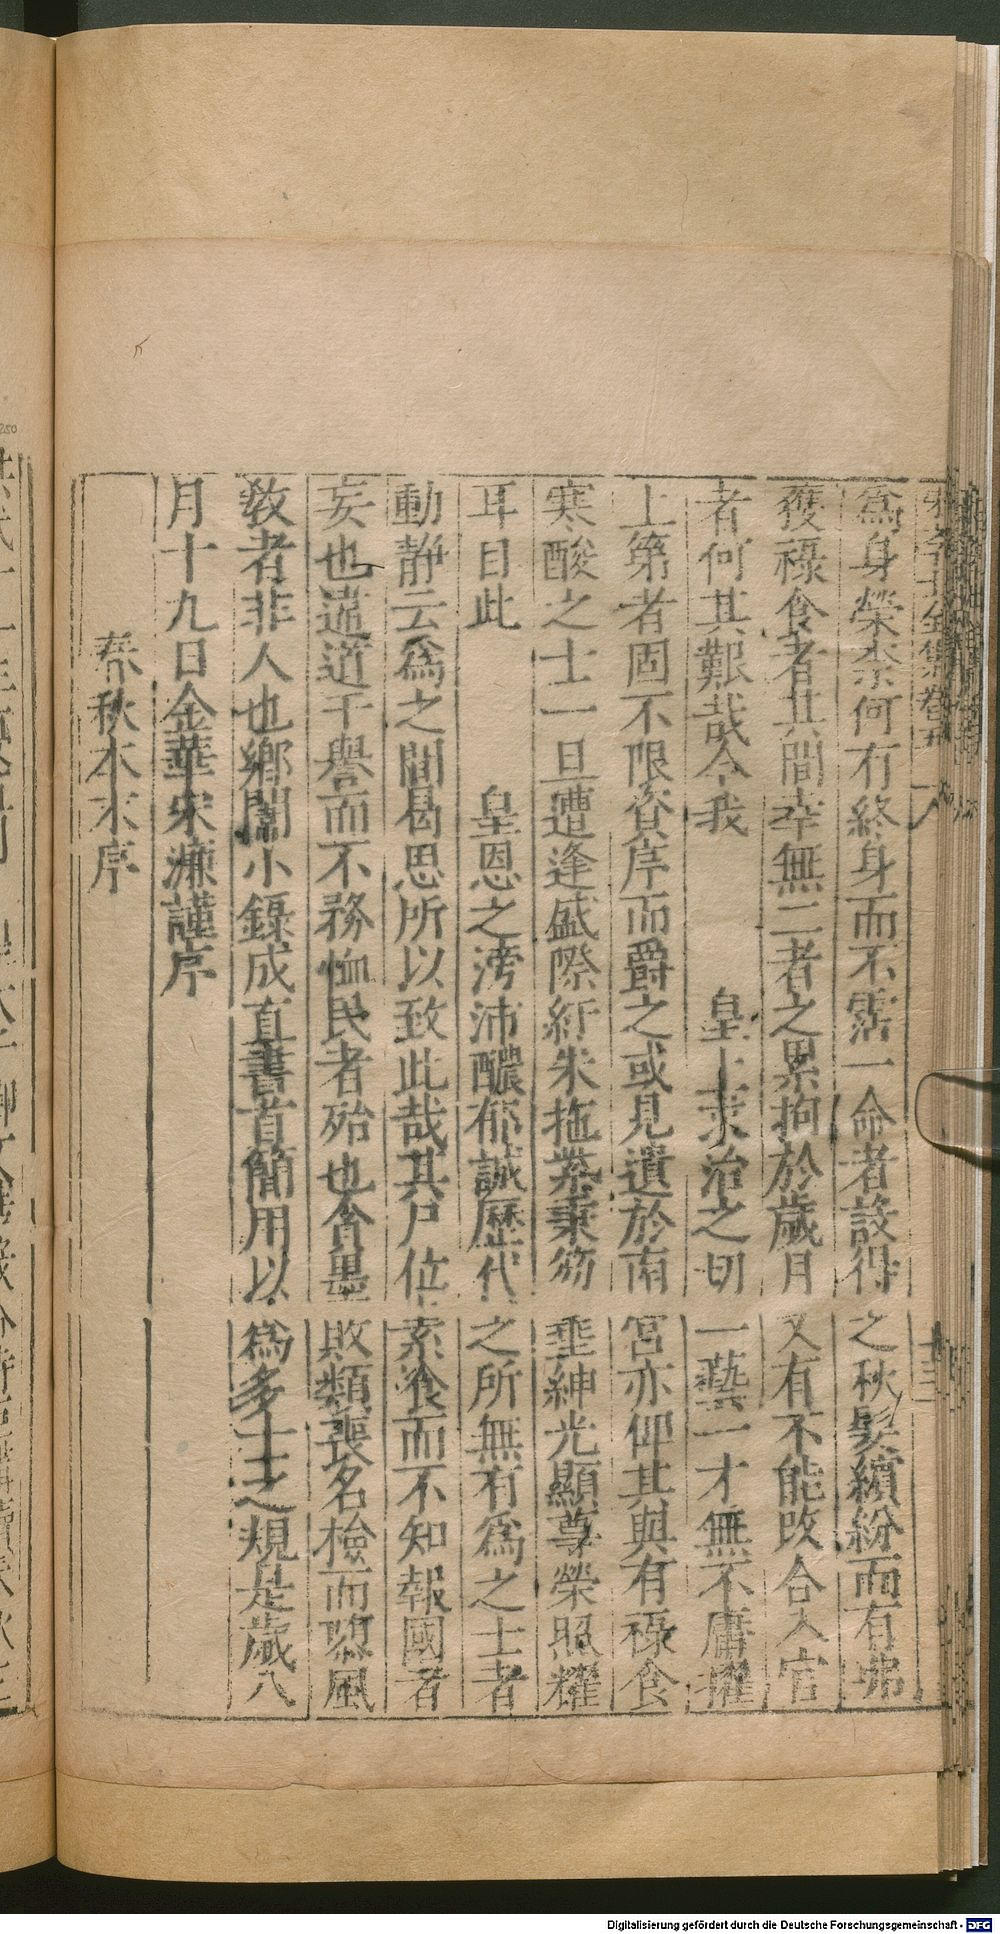 為身榮柰何有終身而不霑一命者設得之秋髮繽紛而有弗
獲祿食者其間幸無二者之累拘於歲月又有不能改合入官
者何其艱哉今我皇上求治之切一藝一才無不庸擢
上第者固不限資序而爵之或見遺於南宮亦仰其與有祿食
寒酸之士一旦遭逢盛際紆朱拖紫秉笏垂紳光顯尊榮照耀
耳目此皇恩之滂沛醲郁誠歷代之所無有為之士者
動静云為之間曷思所以致此哉其尸位素飡而不知報國者
妄也違道干譽而不務恤民者殆也貪墨敗類喪名檢而隳風
教者非人也鄉闈小錄成直書首簡用以為多士之規是歲八
月十九日金華宋濂謹序
春秋本末序
Digitalisierung gefördert durch die Deutsche Forschungsgemeinschaft - DFG